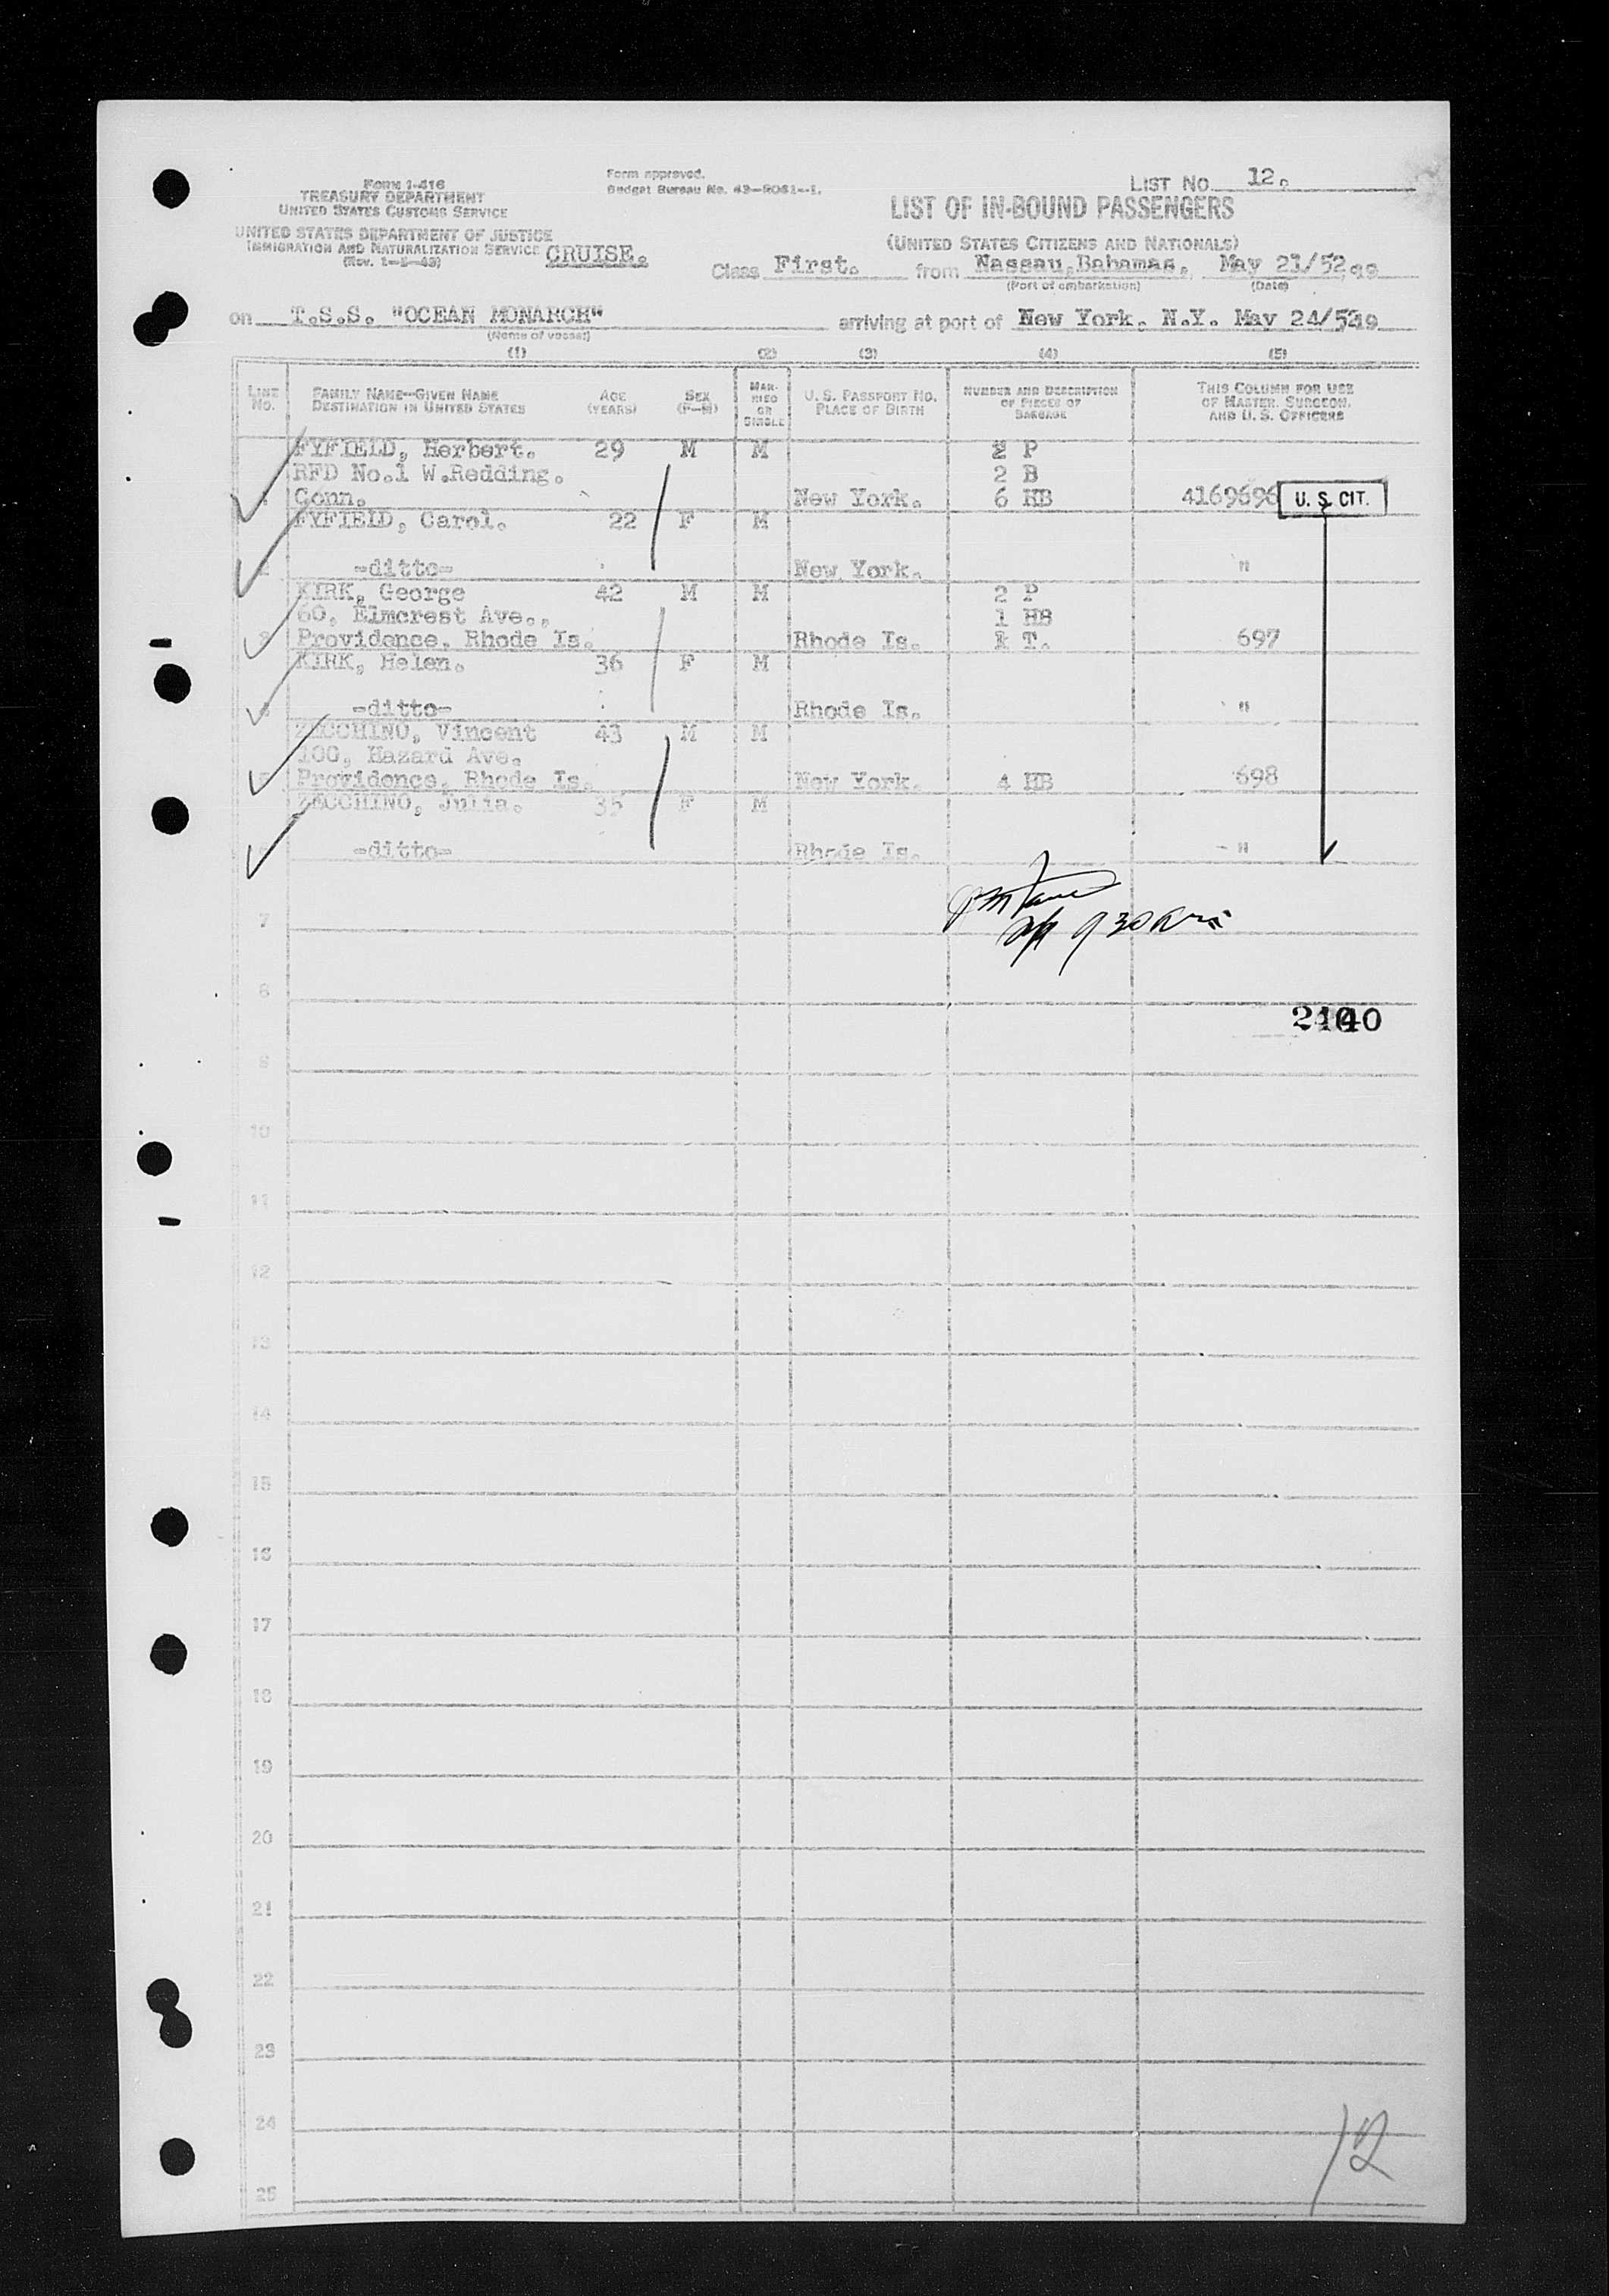 Form I-416
TREASURY DEPARTMENT
UNITED STATES CUSTOMS SERVICE
UNITED STATES DEPARTMENT OF JUSTICE
IMMIGRATION AND NATURALIZATION SERVICE
CRUISE.
Form approved.
LIST NO. 12.
LIST OF IN-BOUND PASSENGERS
(UNITED STATES CITIZENS AND NATIONALS)
Class First. from Nassau, Bahamas, May 21/52, 19
(Port of embarkation) (Date)
on T.S.S. "OCEAN MONARCH" arriving at port of New York. N.Y. May 24/52 19
(Name of vessel)
(1) (2) (3) (4) (5)
LINE NO. FAMILY NAME—GIVEN NAME DESTINATION IN UNITED STATES AGE (YEARS) SEX (F—M) MARRIED OR SINGLE U. S. PASSPORT NO. PLACE OF BIRTH NUMBER AND DESCRIPTION OF PIECES OF BAGGAGE THIS COLUMN FOR USE OF MASTER, SURGEON, AND U. S. OFFICERS
FYFIELD, Herbert. 29 M M 2 P
RFD No.1 W.Redding. 2 B
1 Conn. New York. 6 HB 4169696 U. S. CIT.
FYFIELD, Carol. 22 F M
2 -ditto- New York. "
KIRK, George 42 M M 2 P
60, Elmcrest Ave., 1 HB
3 Providence, Rhode Is. Rhode Is. 1 T. 697
KIRK, Helen. 36 F M
4 -ditto- Rhode Is. "
ZECCHINO, Vincent 43 M M
100, Hazard Ave.
5 Providence, Rhode Is. New York. 4 HB 698
ZECCHINO, Julia. 35 F M
6 -ditto- Rhode Is. "
7
8
9
10
11
12
13
14
15
16
17
18
19
20
21
22
23
24
25
12